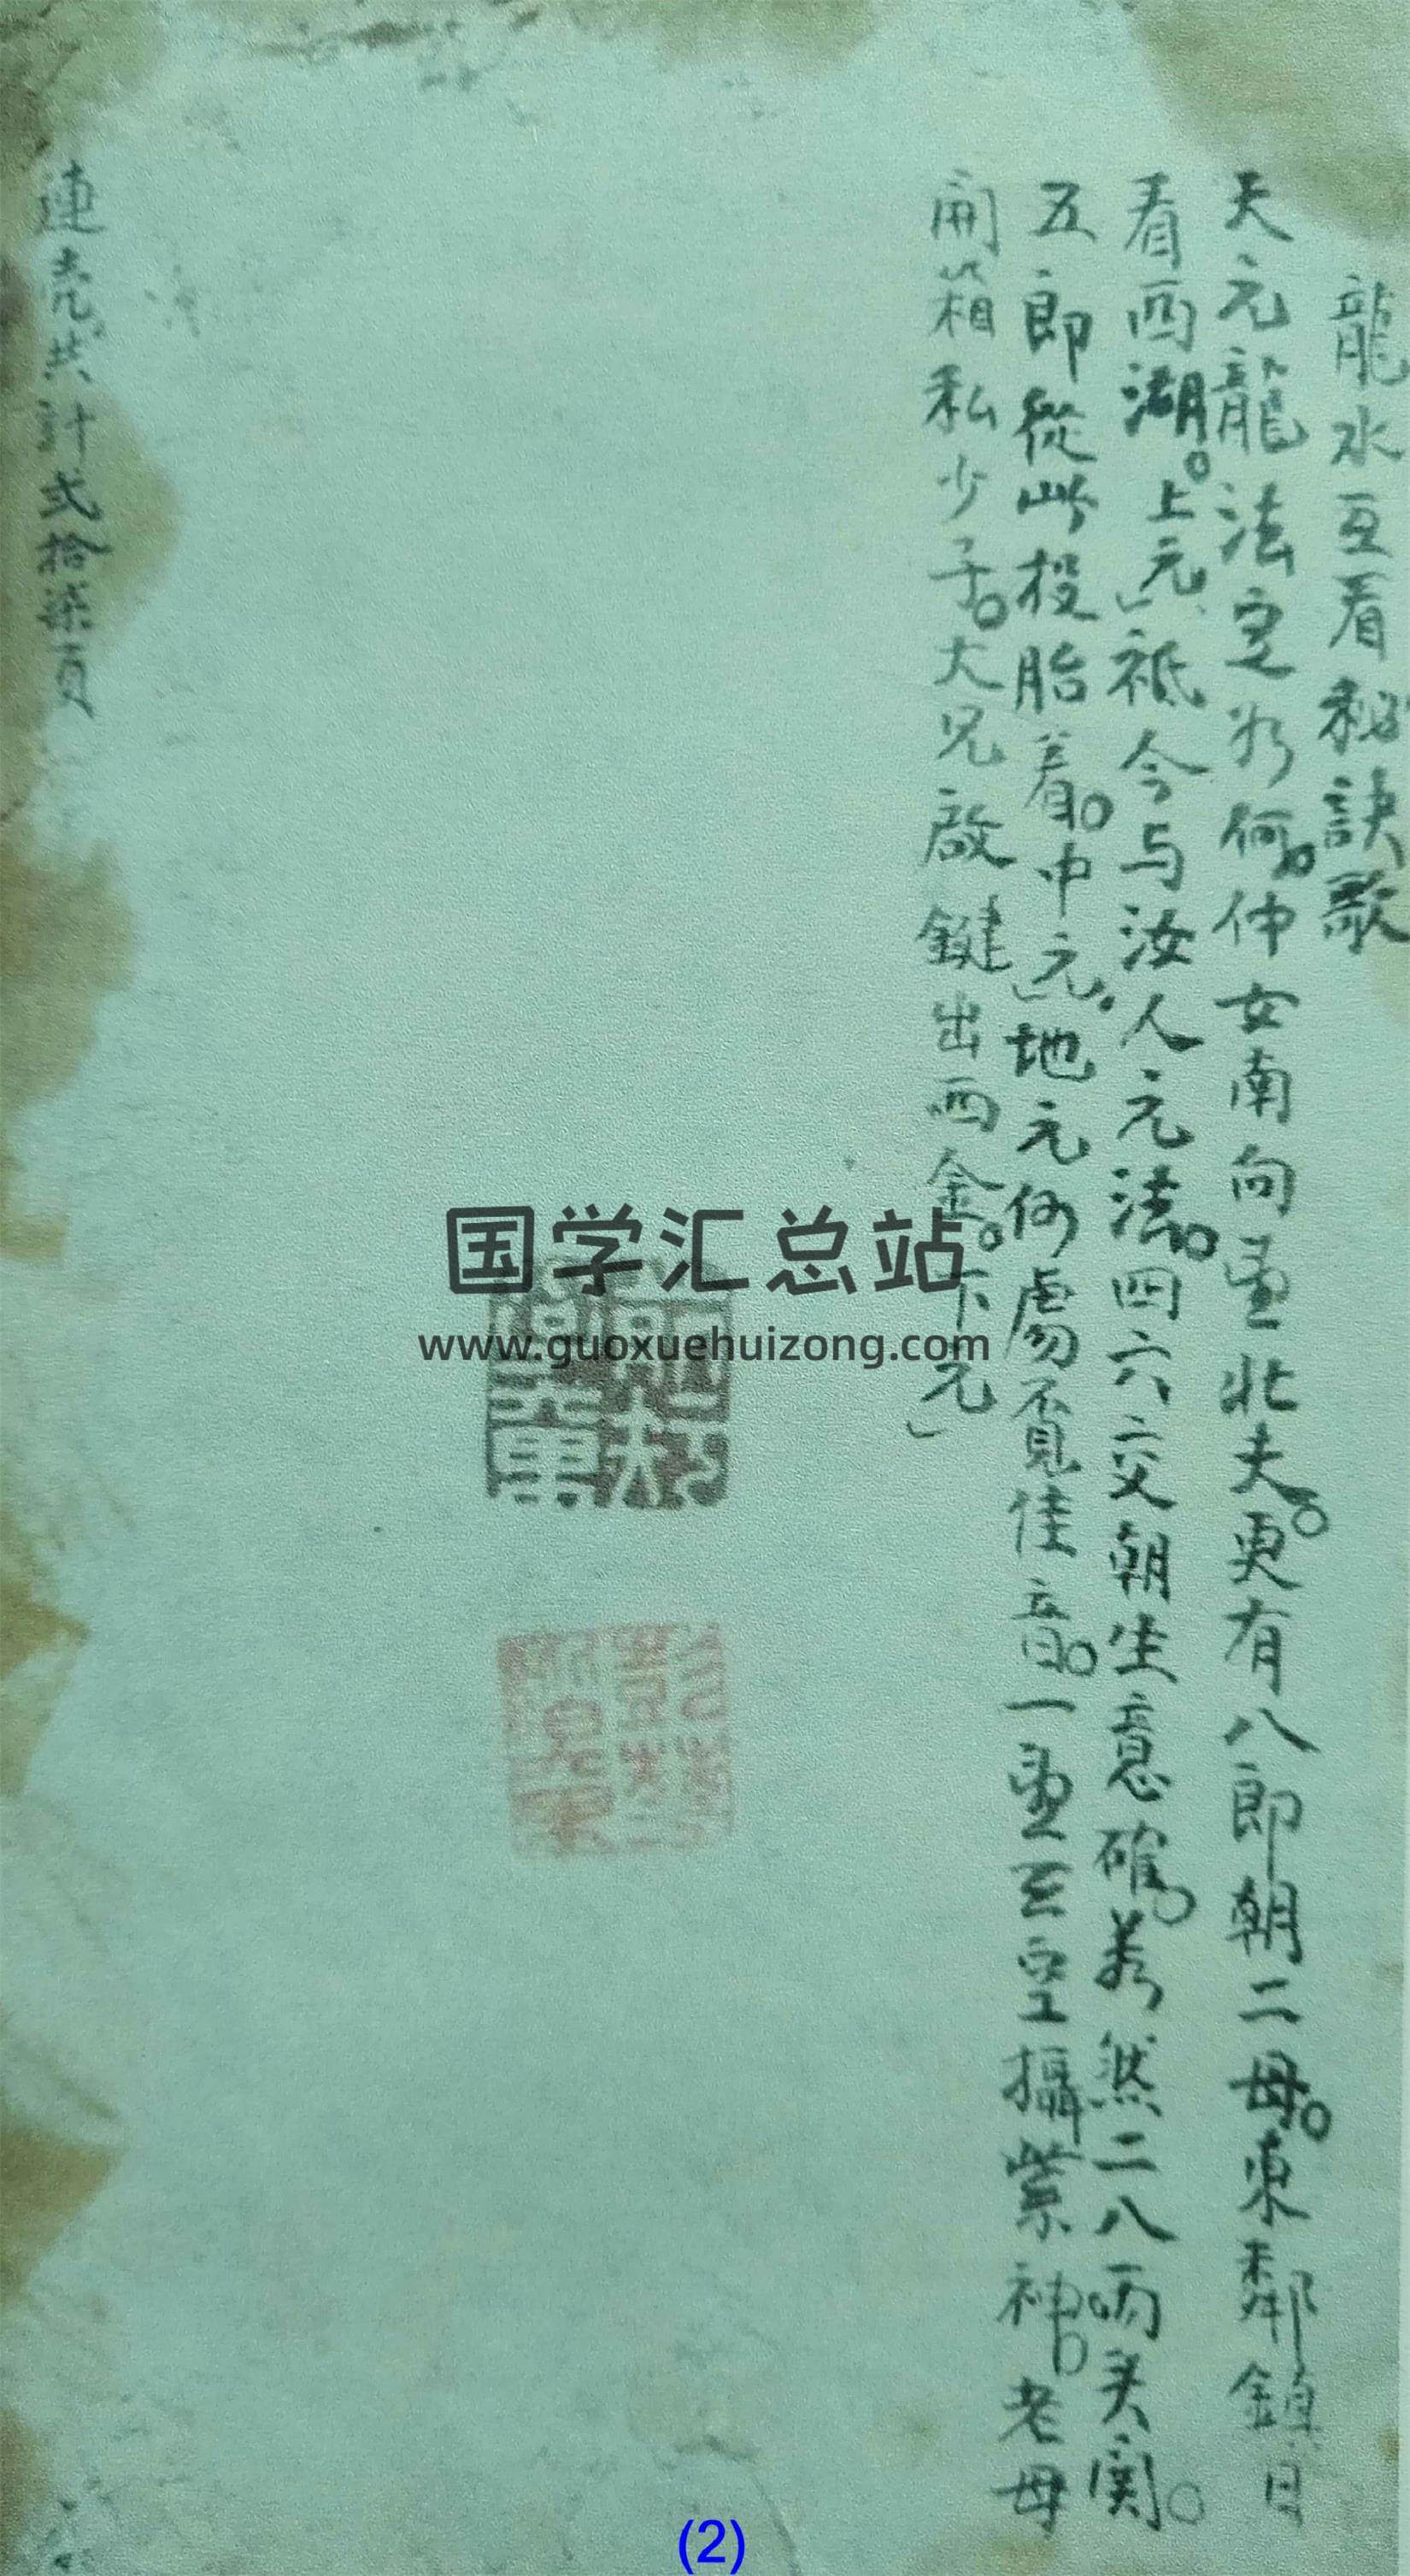 龍水互看秘訣歌
天元龍法定於何。仲女南向画北夫。更有八郎朝二母。東鄰鎮日
看西湖。上元」祗今与汝人元法。四六交朝生意確。若然二八兩关窝。
五郎從此投胎着。中元」地元何處覓佳音。一画三空攝紫神。老母
開箱私少子。大兄啟鍵出西金。下元」
連壳共計弍拾柒頁
国学汇总站
www.guoxuehuizong.com
(2)